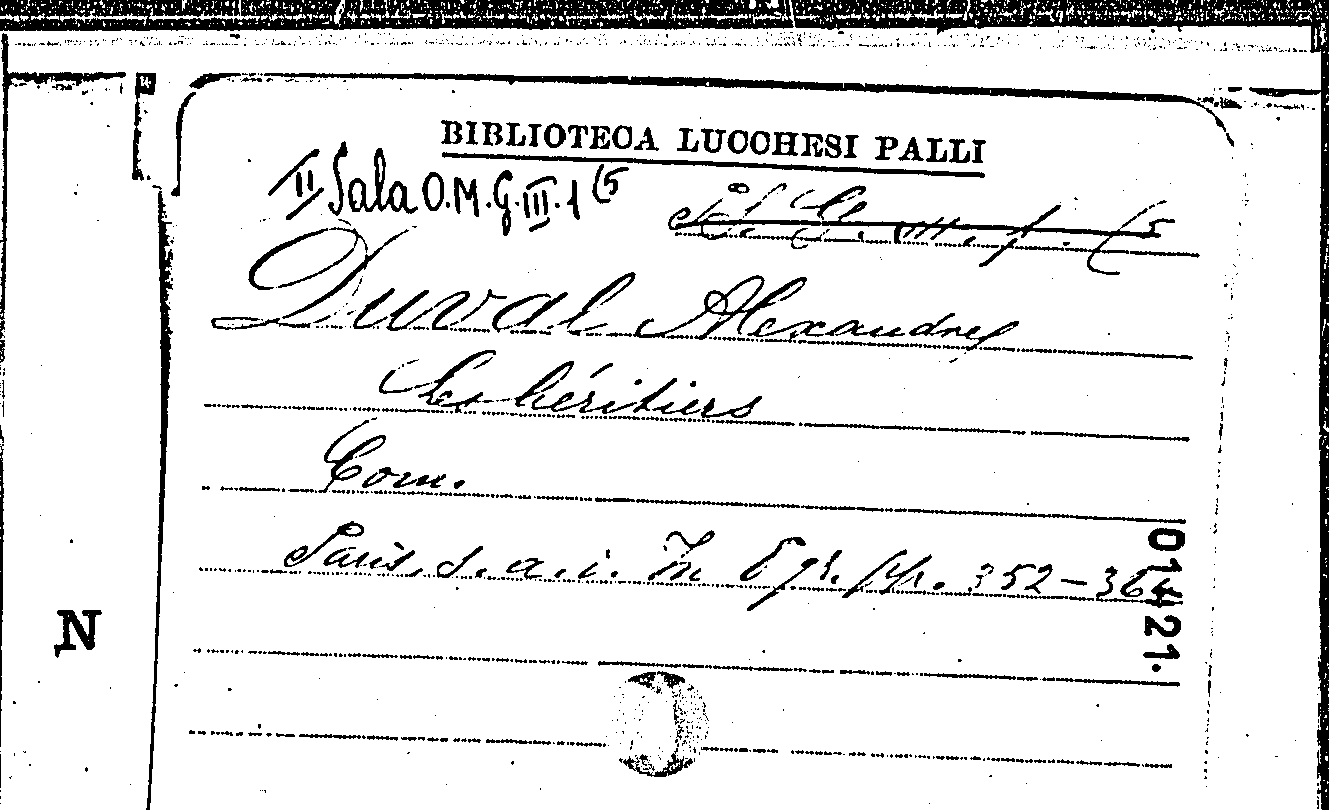 BIBLIOTECA LUCCHESI PALLI
II Sala O.M.G.III.1 (5
G. III. 1. (5
Duval Alexandre
Les héritiers
Com.
Paris, s. a. i. In 8 gr. pp. 352-36
01421.
N